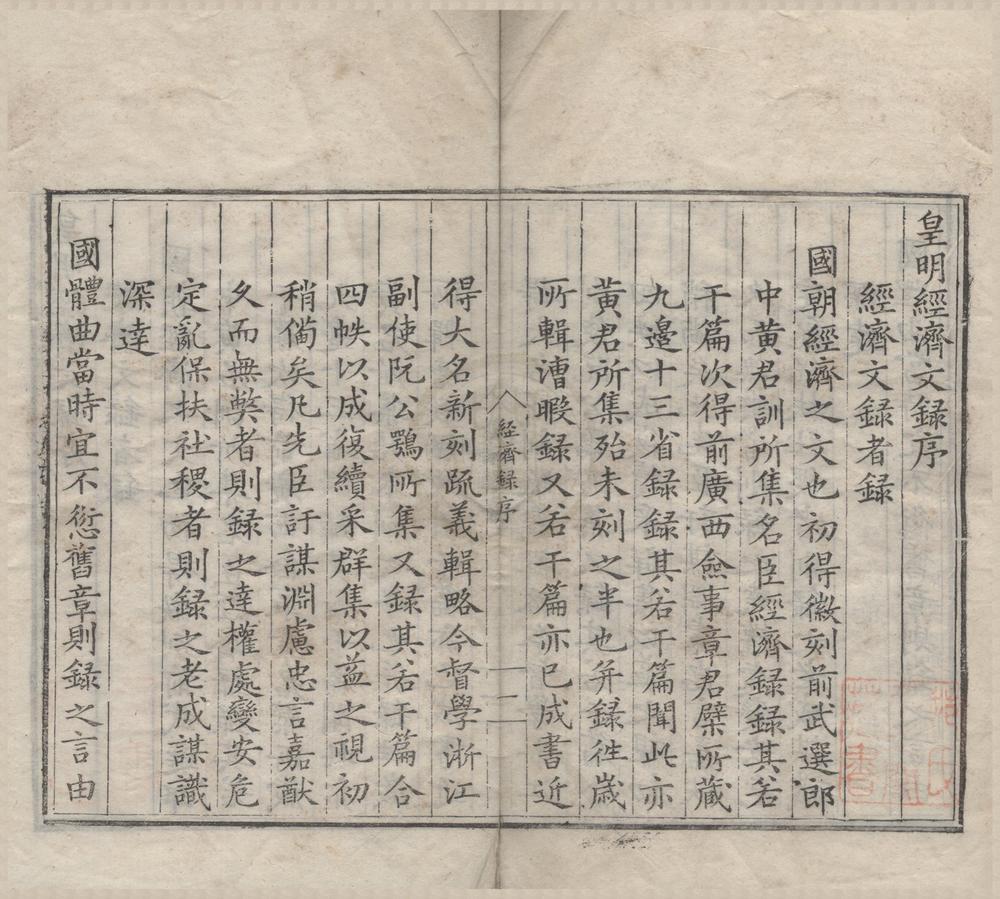 皇明經濟文録序
經濟文録者録
國朝經濟之文也初得徽刻前武選郎
中黄君訓所集名臣經濟録録其若
干篇次得前廣西僉事章君檗所蔵
九邉十三省録録其若干篇聞此亦
黄君所集殆未刻之半也并録徃嵗
所輯漕暇録又若干篇亦已成書近
経齊録序
一
得大名新刻疏義輯略今督學浙江
副使阮公鶚所集又録其若干篇合
四帙以成復續采群集以益之視初
稍僃矣凡先臣訏謀淵慮忠言嘉猷
乆而無獘者則録之達權處變安危
定亂保扶社稷者則録之老成謀識
深逹
國體曲當時宜不愆舊章則録之言由